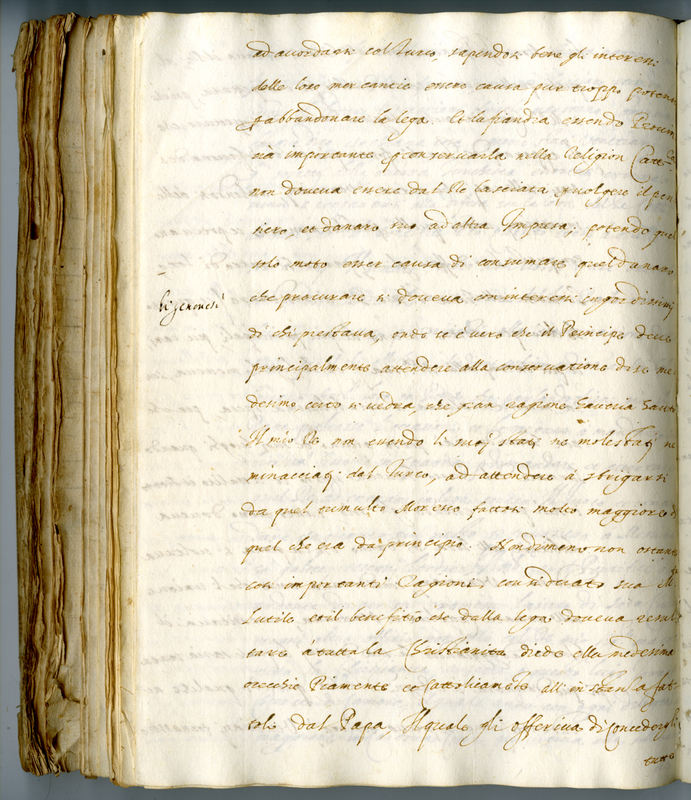 ad acordarsi col Turco, sapendosi bene gli interessi
delle loro mercantie essere causa pur troppo potente
p abbandonare la lega. Et la fiandra essendo Provin
cia importante p conservarla nella Religion Catt.ca
non doveva essere dal Re lasciata, p volgere il pen
siero, et danaro suo ad altra Impresa, potendo quel
solo moto esser causa di consumare quel danaro
che procurare si doveva con interessi ingordissimi
li genovesi
di chi prestava, onde se è vero che il Principe deve
principalmente attendere alla conservatione di se me
desimo, certo si vedrà, che gran ragione haveria havuto
Il mio Re non avendo li suoj stati ne molestatj ne
minacciatj dal Turco, ad attendere à sbrigarsi
da quel tumulto Moresco fattosi molto maggiore di
quel che era da principio. Nondimeno non ostante
cosi importanti Cagioni, considerato sua M.tà
l'utile et il benefitio che dalla lega doveva resul
tare à tutta la Christianità diede ella medesima
orecchie Piamente et Cattolicamte all' instanza fat
tole dal Papa, Il quale gli offeriva di Concedergli